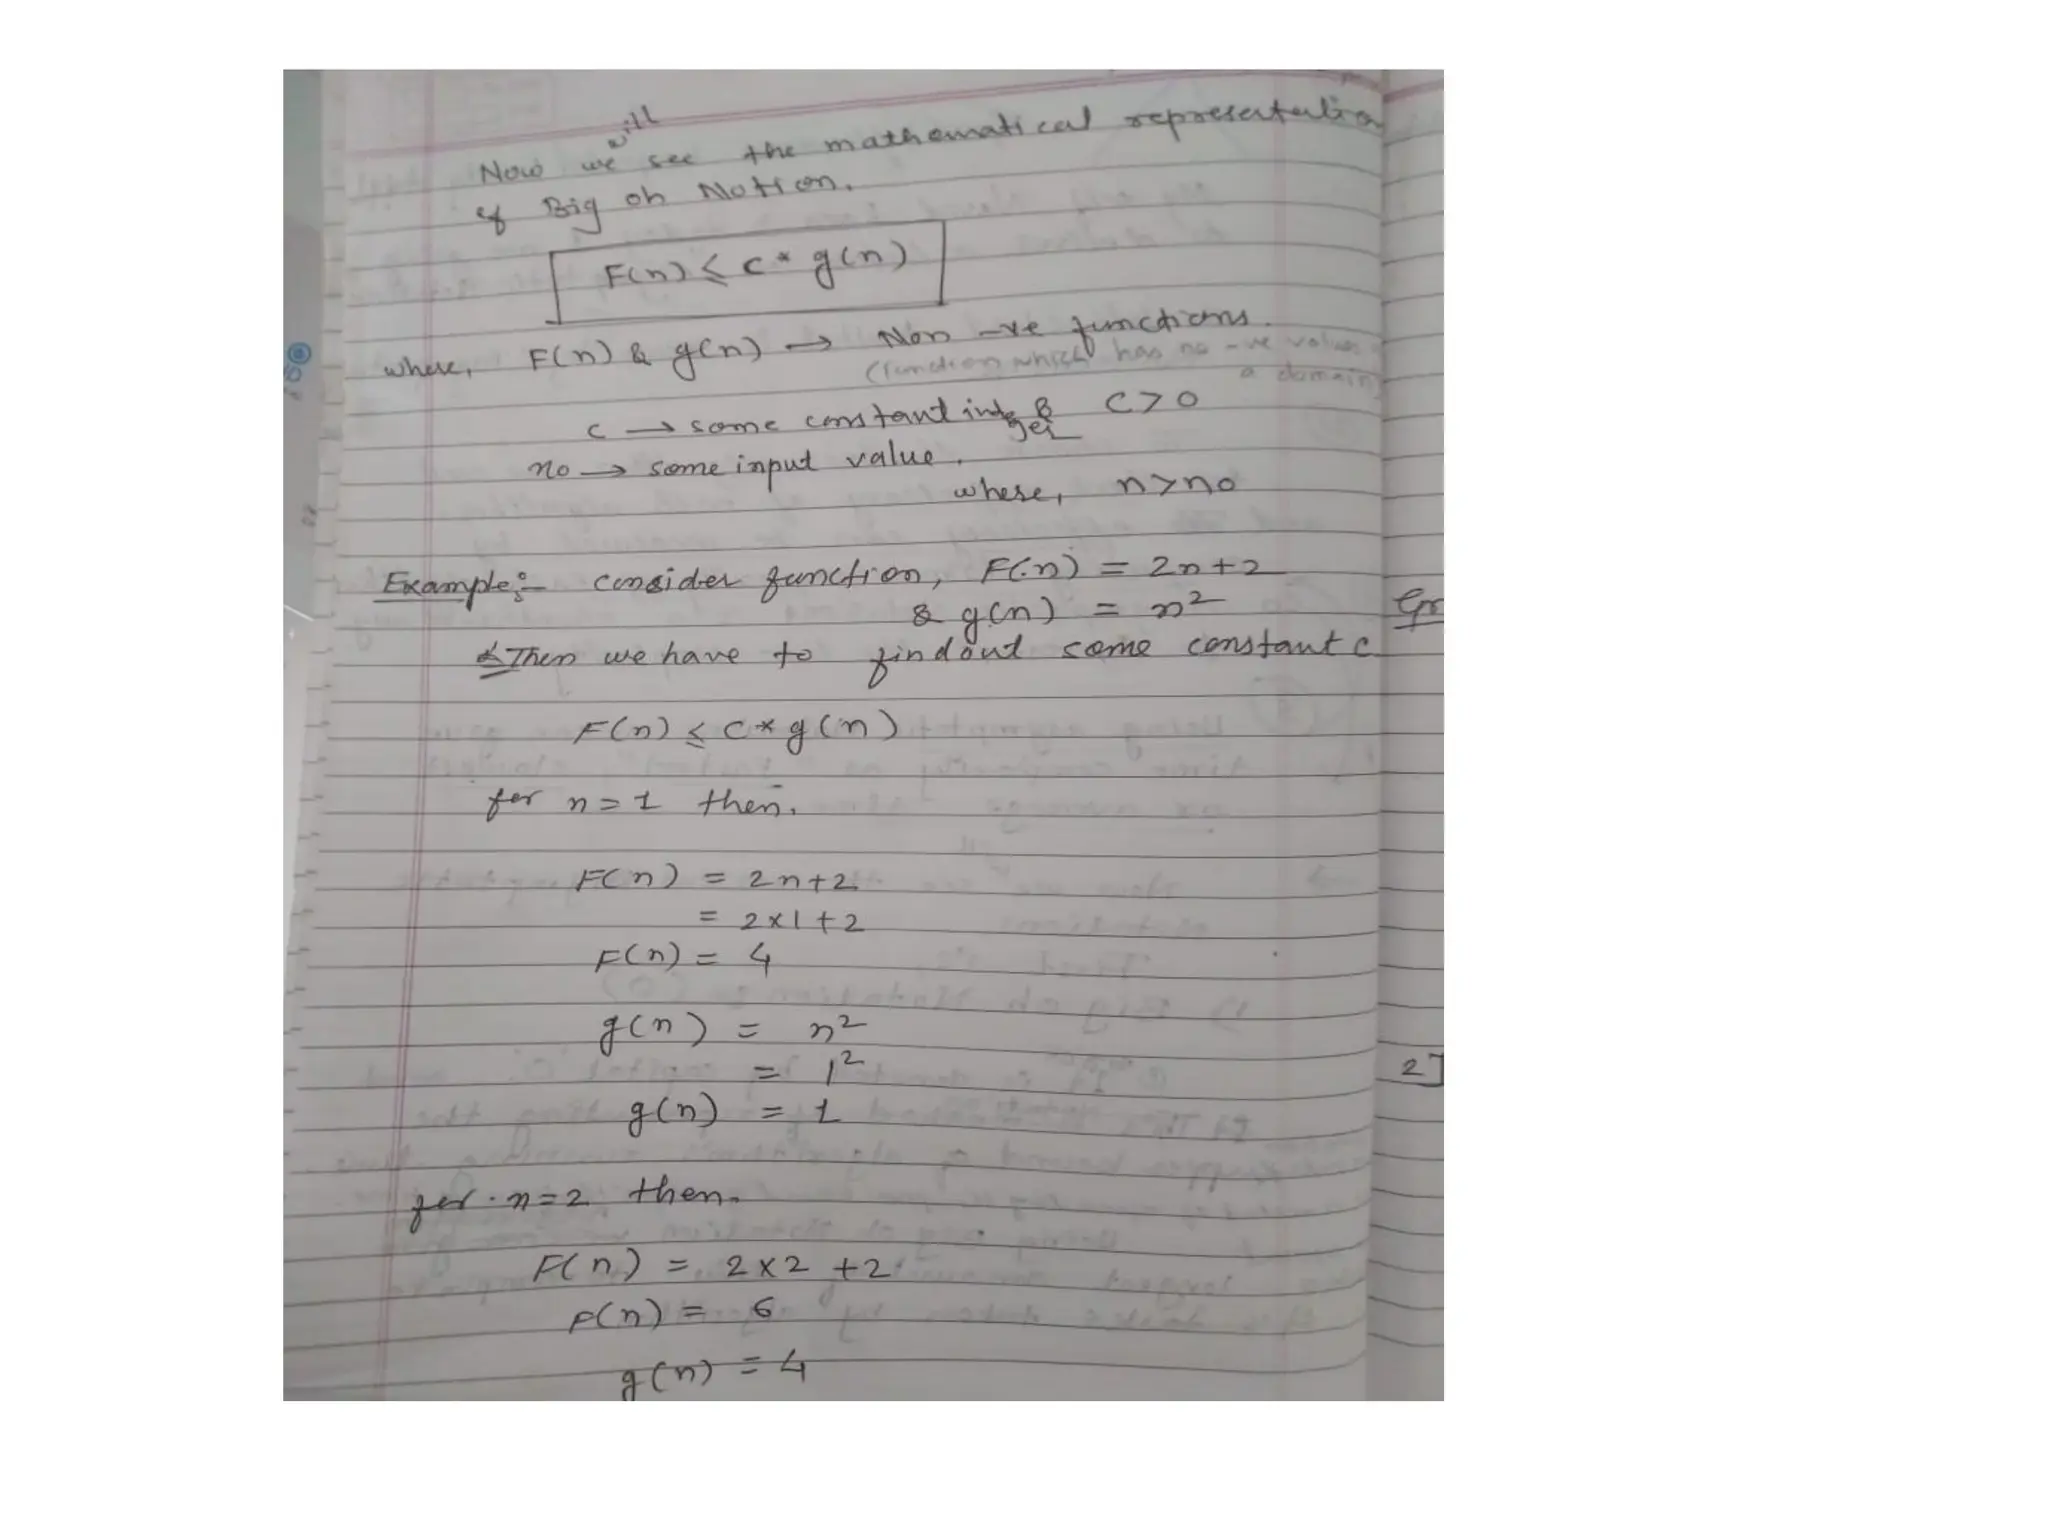 Now we will see the mathematical representation
of Big oh Notion.
F(n) ≤ c * g(n)
where, F(n) & g(n) → Non -ve functions.
(function which has no -ve values
a domain)
c → some constant integer & c>0
no → some input value.
where, n>no
Example:- consider function, F(n) = 2n+2
& g(n) = n²
Then we have to findout some constant c
F(n) ≤ c * g(n)
for n=1 then.
F(n) = 2n+2
= 2×1+2
F(n) = 4
g(n) = n²
= 1²
g(n) = 1
for n=2 then.
F(n) = 2×2 +2
F(n) = 6
g(n) = 4
Gr
2]